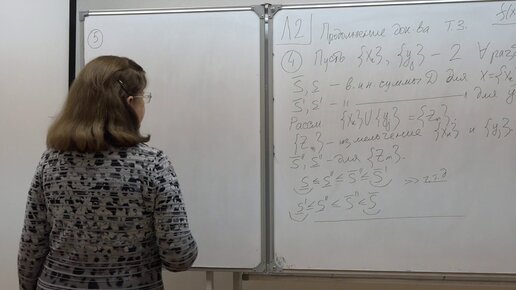 ⑤
Л2 Продолжение док-ва Т.3.
④ Пусть {xₖ}, {yⱼ} – 2 ∀ раз
S̄, S̲ – в. и н. суммы Д для X = {x
S̄', S̲' – " для y
Рассм. {xₖ} ∪ {yⱼ} = {zₘ}.
{zₘ} – измельчение {xₖ} и {yⱼ}.
S̄'', S̲'' – для {zₘ}.
S̲ ≤ S̲'' ≤ S̄'' ≤ S̄' >> ч.т.д
S̲' ≤ S̲'' ≤ S̄'' ≤ S̄